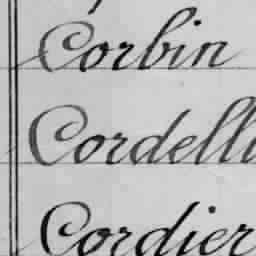 Corbin
Cordelli
Cordier